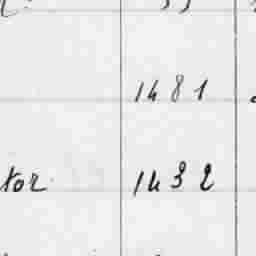 1481
tor. 1432